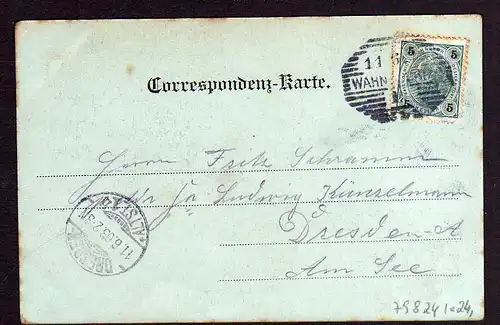 5 5
5 5
11 6
WAHN
Correspondenz-Karte.
Herrn Fritz Schramm
Ludwig Künzelmann
Dresden-A
Am See
DRESDEN
ALTST.
11.6.03.2-3N
79824 1e24,